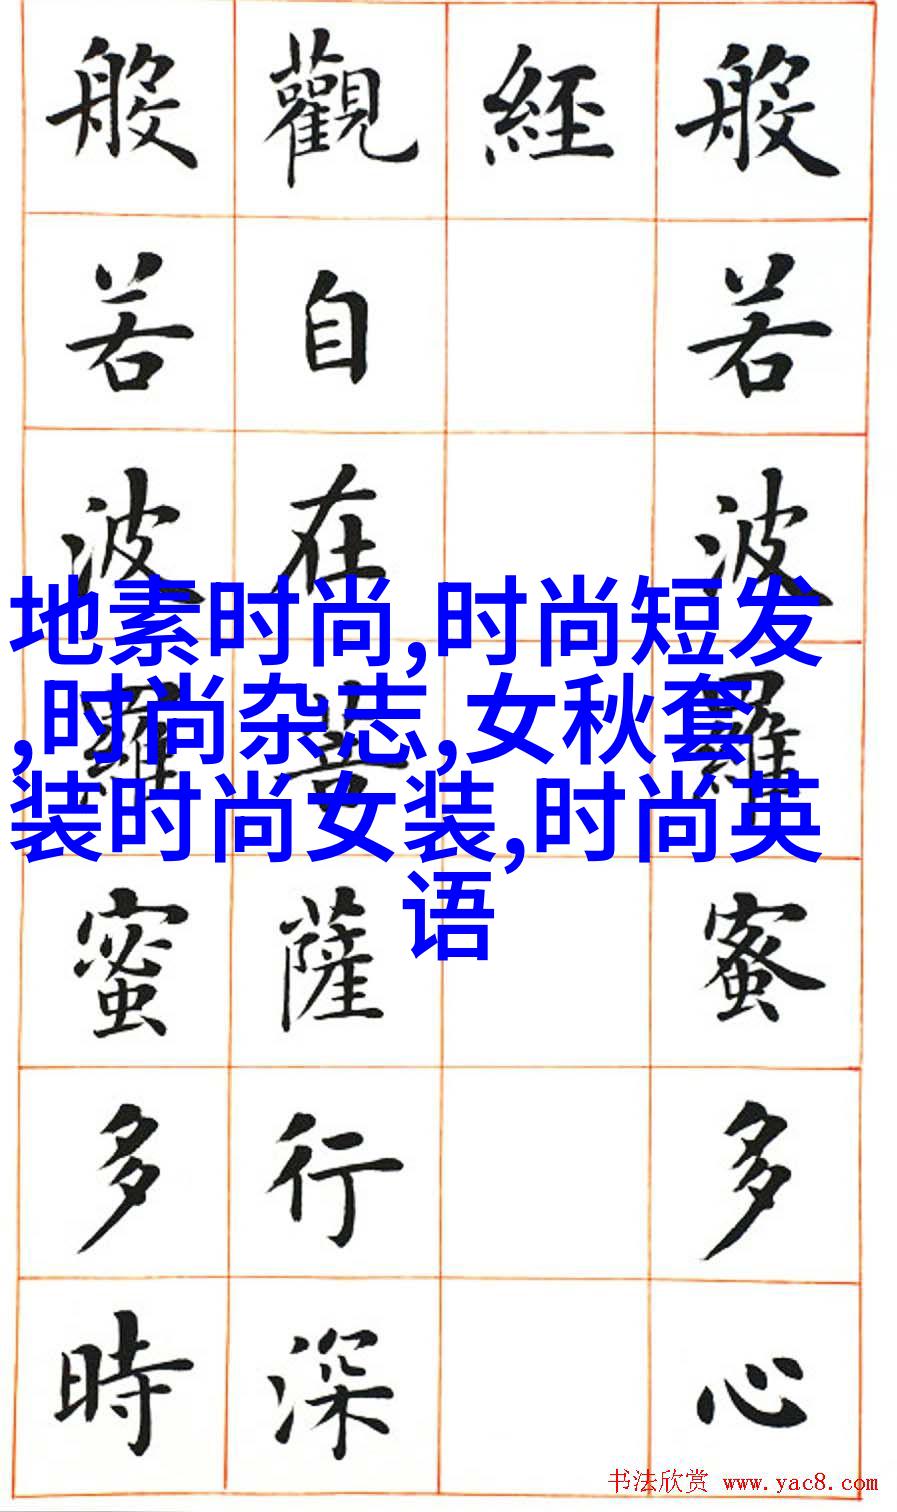 般若波羅蜜多心
經
觀自在菩薩行深
般若波羅蜜多時
地素时尚,时尚短发
,时尚杂志,女秋套
装时尚女装,时尚英
语
书法欣赏 www.yac8.com